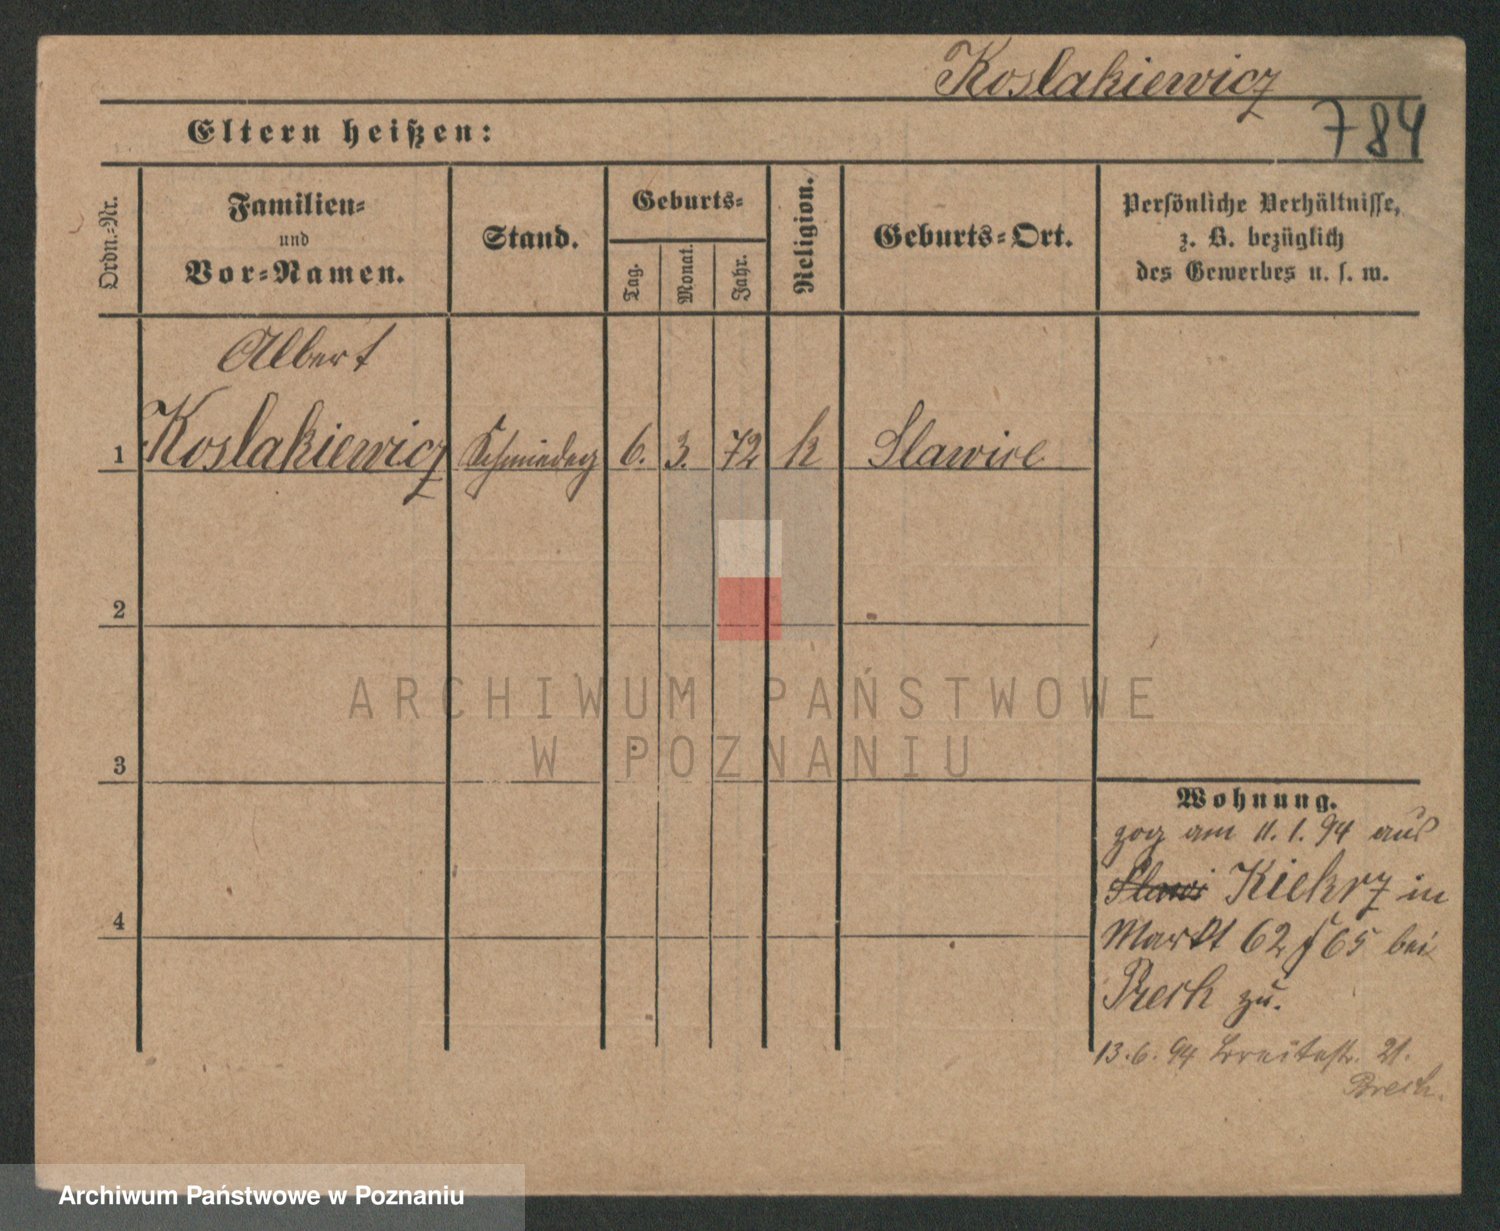 Koslakiewicz
784
Eltern heißen:
Ordn.-Nr.
Familien-
und
Vor-Namen.
Stand.
Geburts-
Tag.
Monat.
Jahr.
Religion.
Geburts-Ort.
Persönliche Verhältnisse,
z. B. bezüglich
des Gewerbes u. s. w.
Albert
1 Koslakiewicz 6. 3. 72 k Slawice
2
3
4
Wohnung.
zog am 11.1.94 aus
Slawi Kiekrz in
Markt 62 65 bei
zu.
13.6.94 Breitestr. 21.
ARCHIWUM PAŃSTWOWE
W POZNANIU
Archiwum Państwowe w Poznaniu